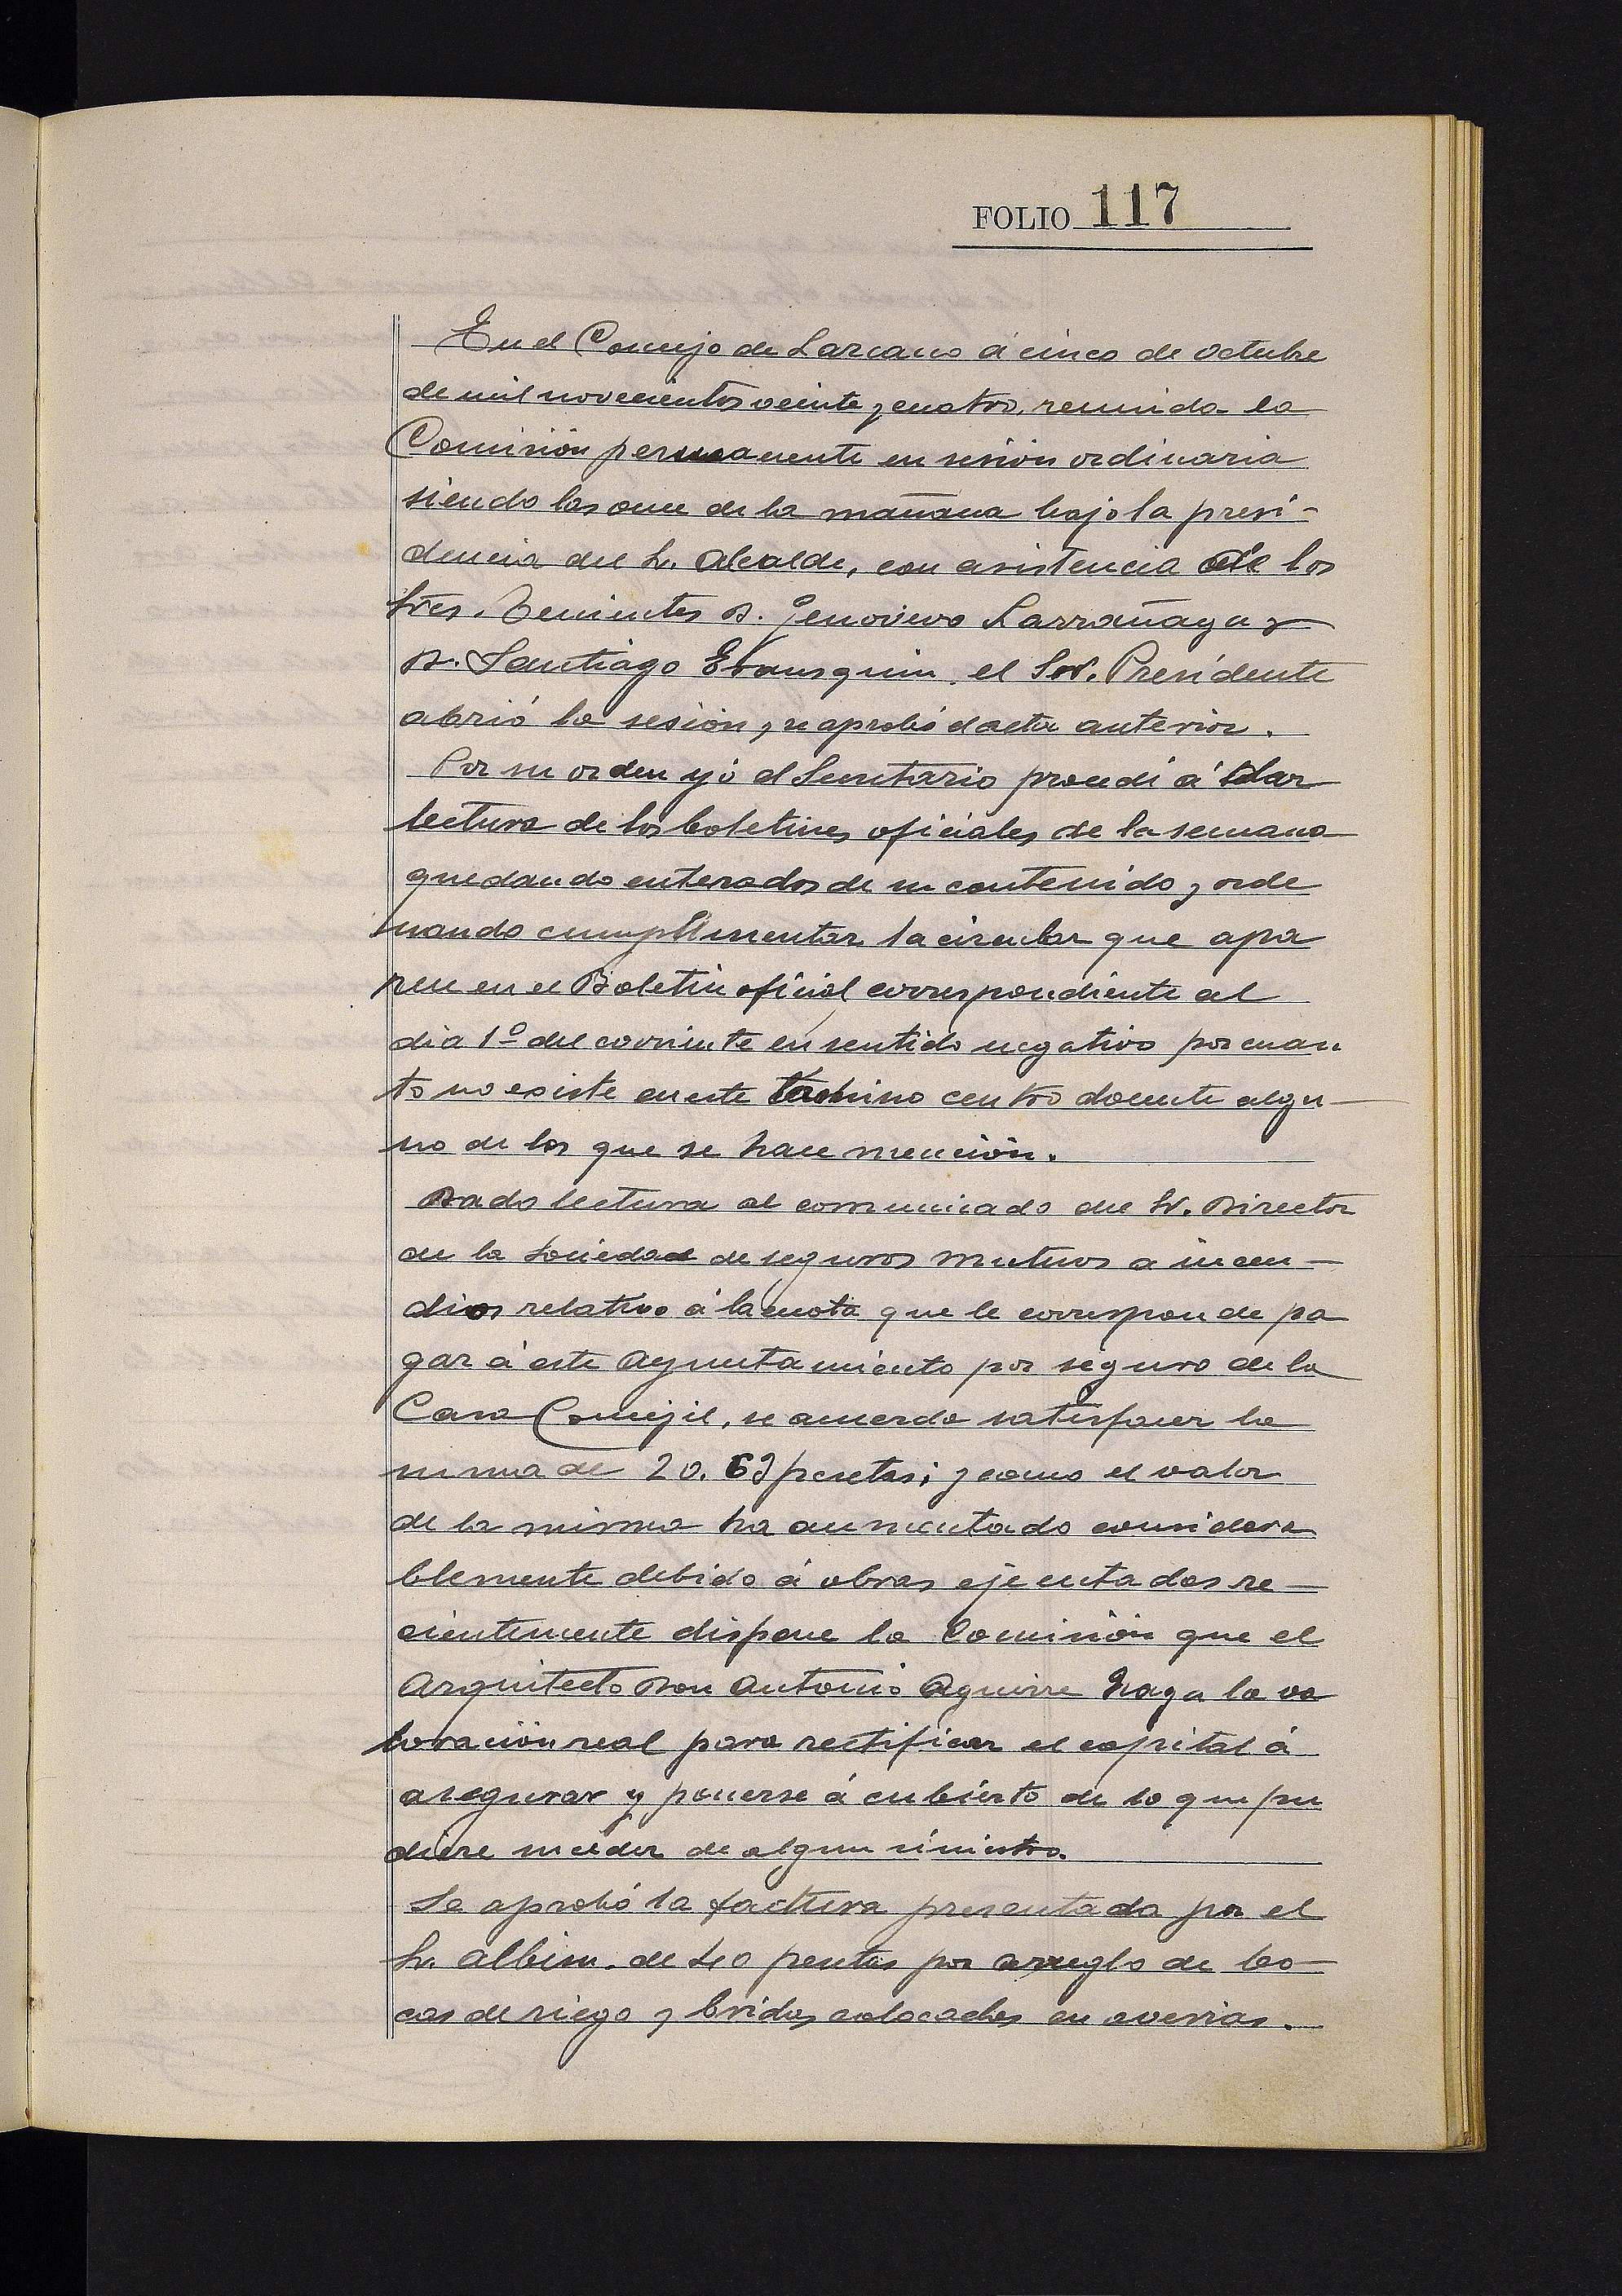 FOLIO 117
En el Concejo de Lazcano á cinco de octubre
de mil novecientos veinte y cuatro, reunida la
Comisión permanente en sesión ordinaria
siendo las once de la mañana bajo la presi-
dencia del Sr. Alcalde, con asistencia de los
Sres. Tenientes D. Genovevo Larrañaga y
D. Santiago Erausquin, el Sr. Presidente
abrió la sesión y se aprobó el acta anterior.
Por su orden yó el Secretario procedí á dar
lectura de los boletines oficiales de la semana
quedando enterados de su contenido y orde
nando cumplimentar la circular que apa
rece en el Boletin oficial correspondiente al
dia 1º del corriente en sentido negativo por cuan
to no existe en este término centro docente algu-
no de los que se hace mención.
Dado lectura al comunicado del Sr. Director
de la Sociedad de seguros mutuos a incen-
dios relativo á la cuota que le corresponde pa
gar á este Ayuntamiento por seguro de la
Casa Concejil, se acuerda satisfacer la
suma de 20.69 pesetas; y como el valor
de la misma ha aumentado considera
blemente debido á obras ejecutadas re-
cientemente dispone la Comisión que el
Arquitecto Don Antonio Aguirre haga la va
loración real para rectificar el capital á
asegurar y ponerse á cubierto de lo que pu
diere suceder de algun siniestro.
Se aprobó la factura presentada por el
Sr. Albisu, de 40 pesetas por arreglo de bo-
cas de riego y bridas colocadas en averias.